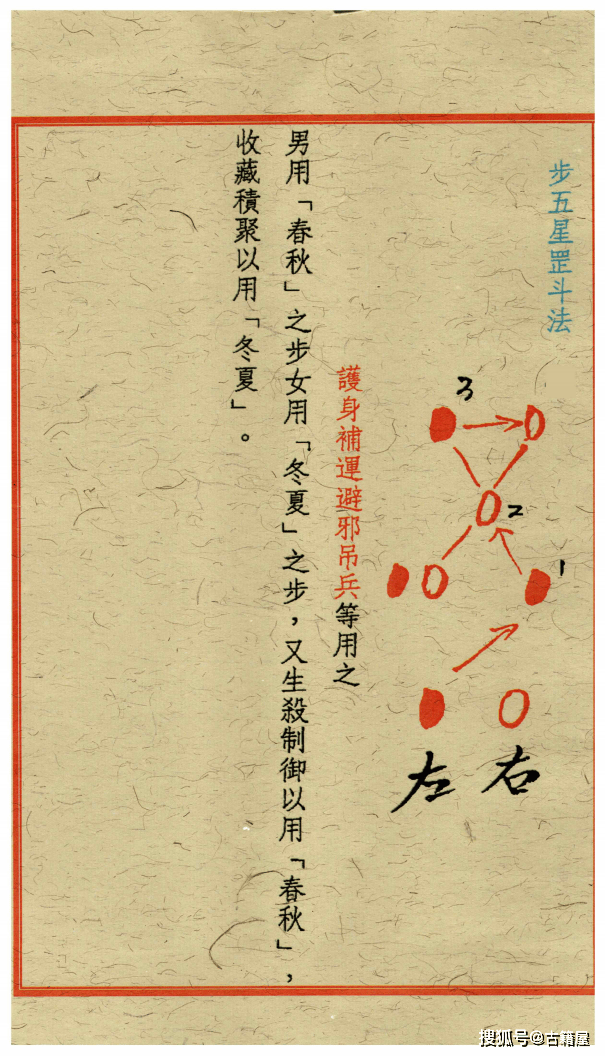 步五星罡斗法
3
2
1
左 右
護身補運避邪吊兵等用之
男用「春秋」之步女用「冬夏」之步，又生殺制御以用「春秋」，
收藏積聚以用「冬夏」。
搜狐号@古籍屋